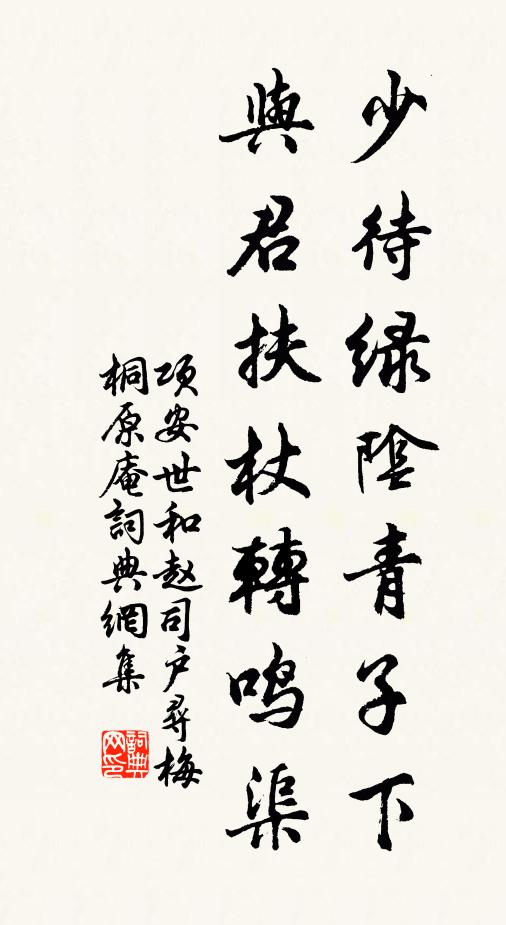 少待绿陰青子下
與君扶杖轉鸣渠
项安世和赵司户尋梅
桐原庵詞典網集
詞典网印